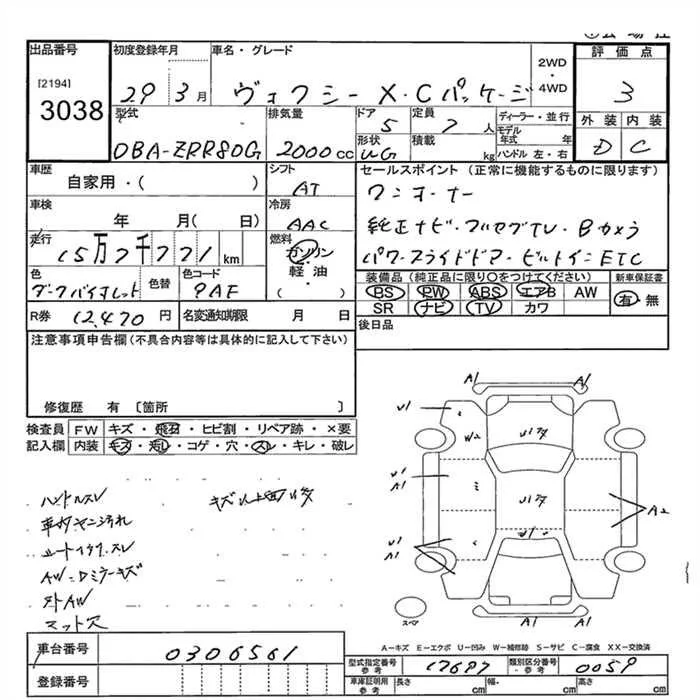 出品番号
[2194]
3038
初度登録年月
29 3月
車名・グレード
ヴォクシー X・Cパッケージ
2WD
・
4WD
評価点
3
型式
DBA-ZRR80G
排気量
2000cc
ドア
5
形状
WG
定員
7人
積載
kg
ディーラー・並行
モデル年式 年
ハンドル 左・右
外装 内装
D C
車歴
自家用・( )
シフト
AT
車検
年 月( 日)
冷房
AAC
走行
15万7千771km
燃料
ガソリン
軽油
・
( )
色
色替
色コード
R券 12,470円
名変通知期限 月 日
セールスポイント (正常に機能するものに限ります)
ワンオーナー
純正ナビ・フルセグTV・Bカメラ
パワースライドドア・ビルトインETC
装備品(純正品に限り○をつけてください)
PS PW ABS エアB AW
SR ナビ TV カワ
新車保証書
有・無
後日品
注意事項申告欄(不具合内容等は具体的に記入して下さい)
修復歴 有 〔箇所 〕
検査員
記入欄
FW キズ・飛石・ヒビ割・リペア跡・×要
内装 キズ・汚レ・コゲ・穴・スレ・キレ・破レ
ハンドルスレ
キズ以上凹多
車内ヤニ汚れ
シートイタミ、スレ
AW・Dミラーキズ
外AW
マット穴
A1
A1
U1
W2
U1多
U1
A1
U1多
A2
U1
A1
U1
A1
A1
スペア
A-キズ E-エクボ U-凹み W-補修跡 S-サビ C-腐食 XX-交換済
車台番号 0306561
登録番号
型式指定番号
参考
17697
類別区分番号
参考
0059
車庫証明用
参考
長さ cm 幅・ cm 高さ cm